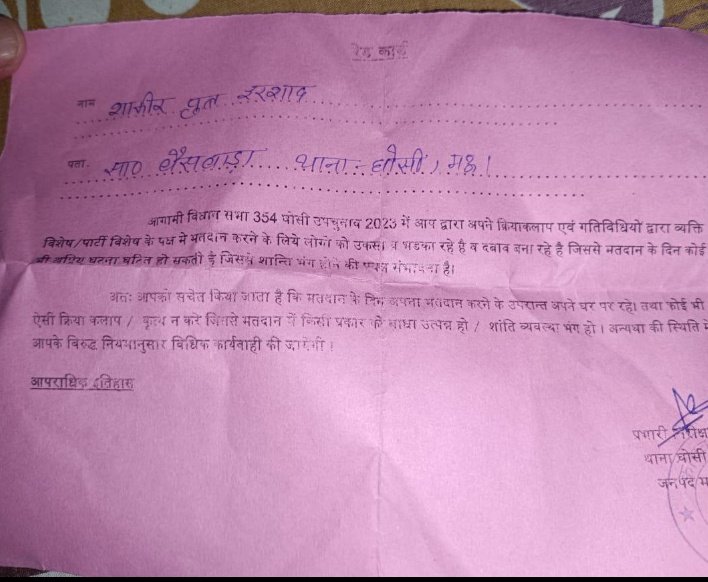 रेड कार्ड
नाम शाकीर पुत्र इरशाद
पता. सा0 बैसवाड़ा थाना - घोसी, मऊ।
आगामी विधान सभा 354 घोसी उपचुनाव 2023 में आप द्वारा अपने क्रियाकलाप एवं गतिविधियों द्वारा व्यक्ति
विशेष/पार्टी विशेष के पक्ष में मतदान करने के लिये लोगों को उकसा व भडका रहे है व दबाव बना रहे है जिससे मतदान के दिन कोई
भी अप्रिय घटना घटित हो सकती है जिससे शान्ति भंग होने की प्रबल संभावना है।
अतः आपको सचेत किया जाता है कि मतदान के दिन अपना मतदान करने के उपरान्त अपने घर पर रहे। तथा कोई भी
ऐसी क्रिया कलाप / कृत्य न करे जिससे मतदान में किसी प्रकार की बाधा उत्पन्न हो / शांति व्यवस्था भंग हो। अन्यथा की स्थिति में
आपके विरूद्ध नियमानुसार विधिक कार्यवाही की जायेगी।
आपराधिक इतिहास
प्रभारी निरीक्ष
थाना घोसी
जनपद म